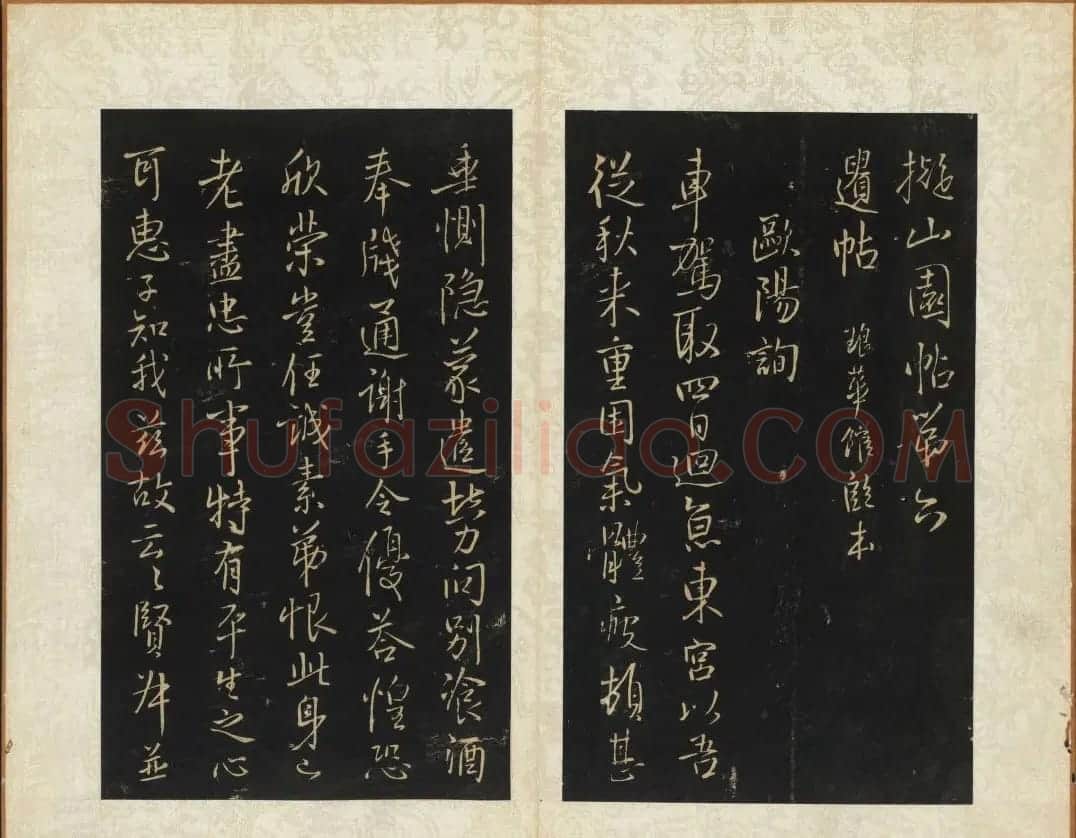 擬山園帖第六
遺帖 琅華館藏本
歐陽詢
車駕取四日過亟東宮以吾
從秋來重困氣體疲頓甚
垂惻隱蒙遣勞問別飡酒
奉牋通謝手令優答惶恐
欣榮豈任誠素第恨此身已
老盡忠所事特有平生之心
耳惠子知我茲故云〻賢弟並
Shufaziliao.COM